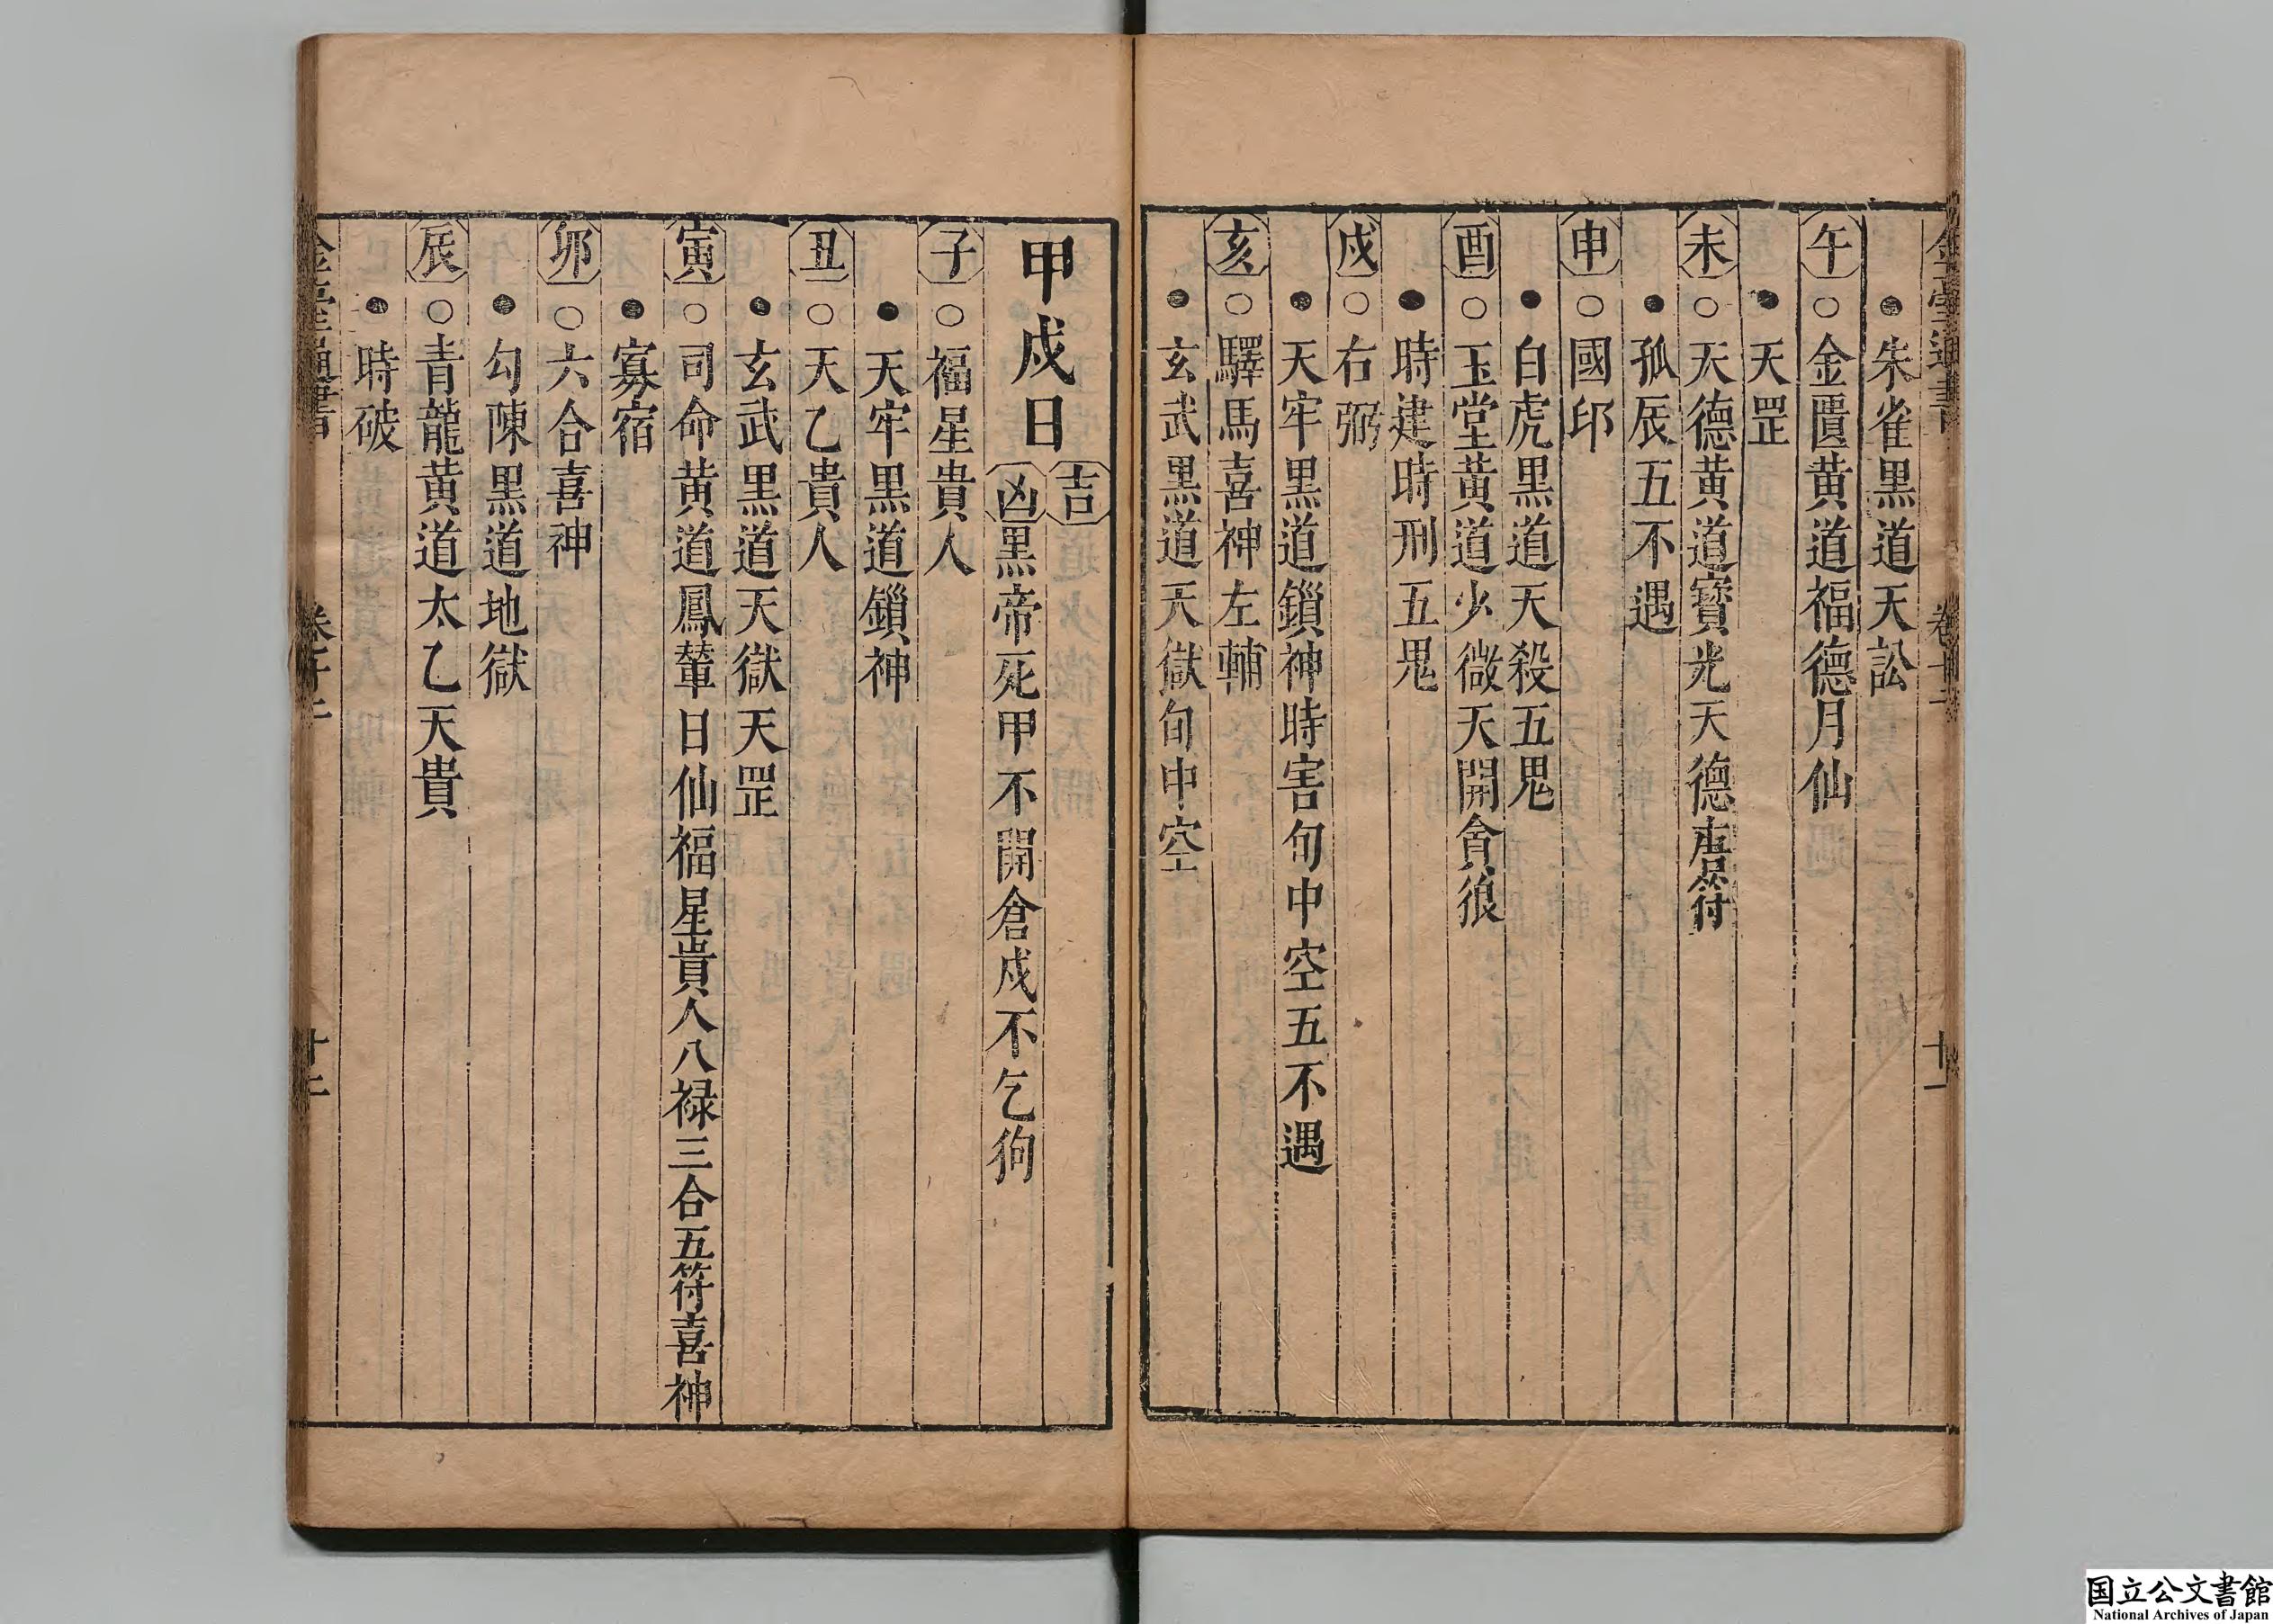 ●朱雀黒道天訟
午○金匱黄道福德月仙
●天罡
未○天德黄道寳光天德唐符
●孤辰五不遇
申○國印
●白虎黒道天殺五鬼
酉○玉堂黄道少微天開貪狼
●時建時刑五鬼
戌○右弼
●天牢黒道鎖神時害旬中空五不遇
亥○驛馬喜神左輔
●玄武黒道天獄旬中空
甲戌日
吉
凶黒帝死甲不開倉戌不乞狗
子○福星貴人
●天牢黒道鎖神
丑○天乙貴人
●玄武黒道天獄天罡
寅○司命黄道鳳輦日仙福星貴人八禄三合五符喜神
●寡宿
卯○六合喜神
●勾陳黒道地獄
辰○青龍黄道太乙天貴
●時破
国立公文書館
National Archives of Japan